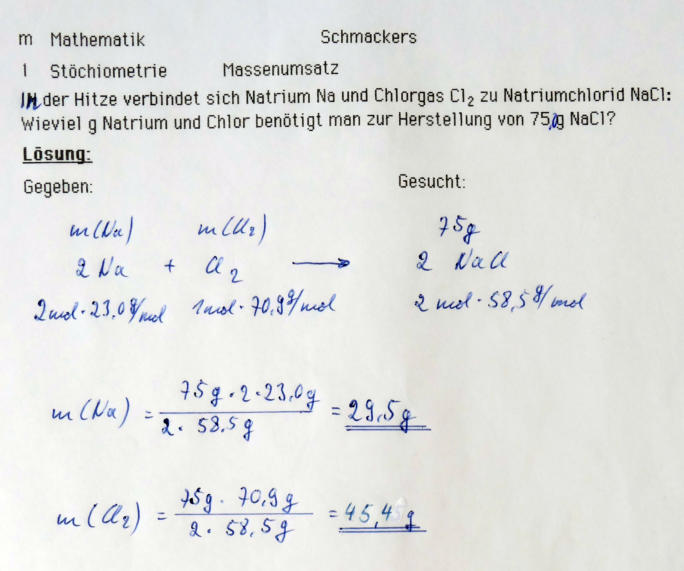 m Mathematik Schmackers
1 Stöchiometrie Massenumsatz
In der Hitze verbindet sich Natrium Na und Chlorgas Cl₂ zu Natriumchlorid NaCl:
Wieviel g Natrium und Chlor benötigt man zur Herstellung von 75,0g NaCl?
Lösung:
Gegeben: Gesucht:
m(Na) m(Cl₂) 75g
2 Na + Cl₂ → 2 NaCl
2mol·23,0g/mol 1mol·70,9g/mol 2 mol·58,5g/mol
m(Na) = 75g·2·23,0g / 2·58,5g = 29,5g
m(Cl₂) = 75g·70,9g / 2·58,5g = 45,4 g